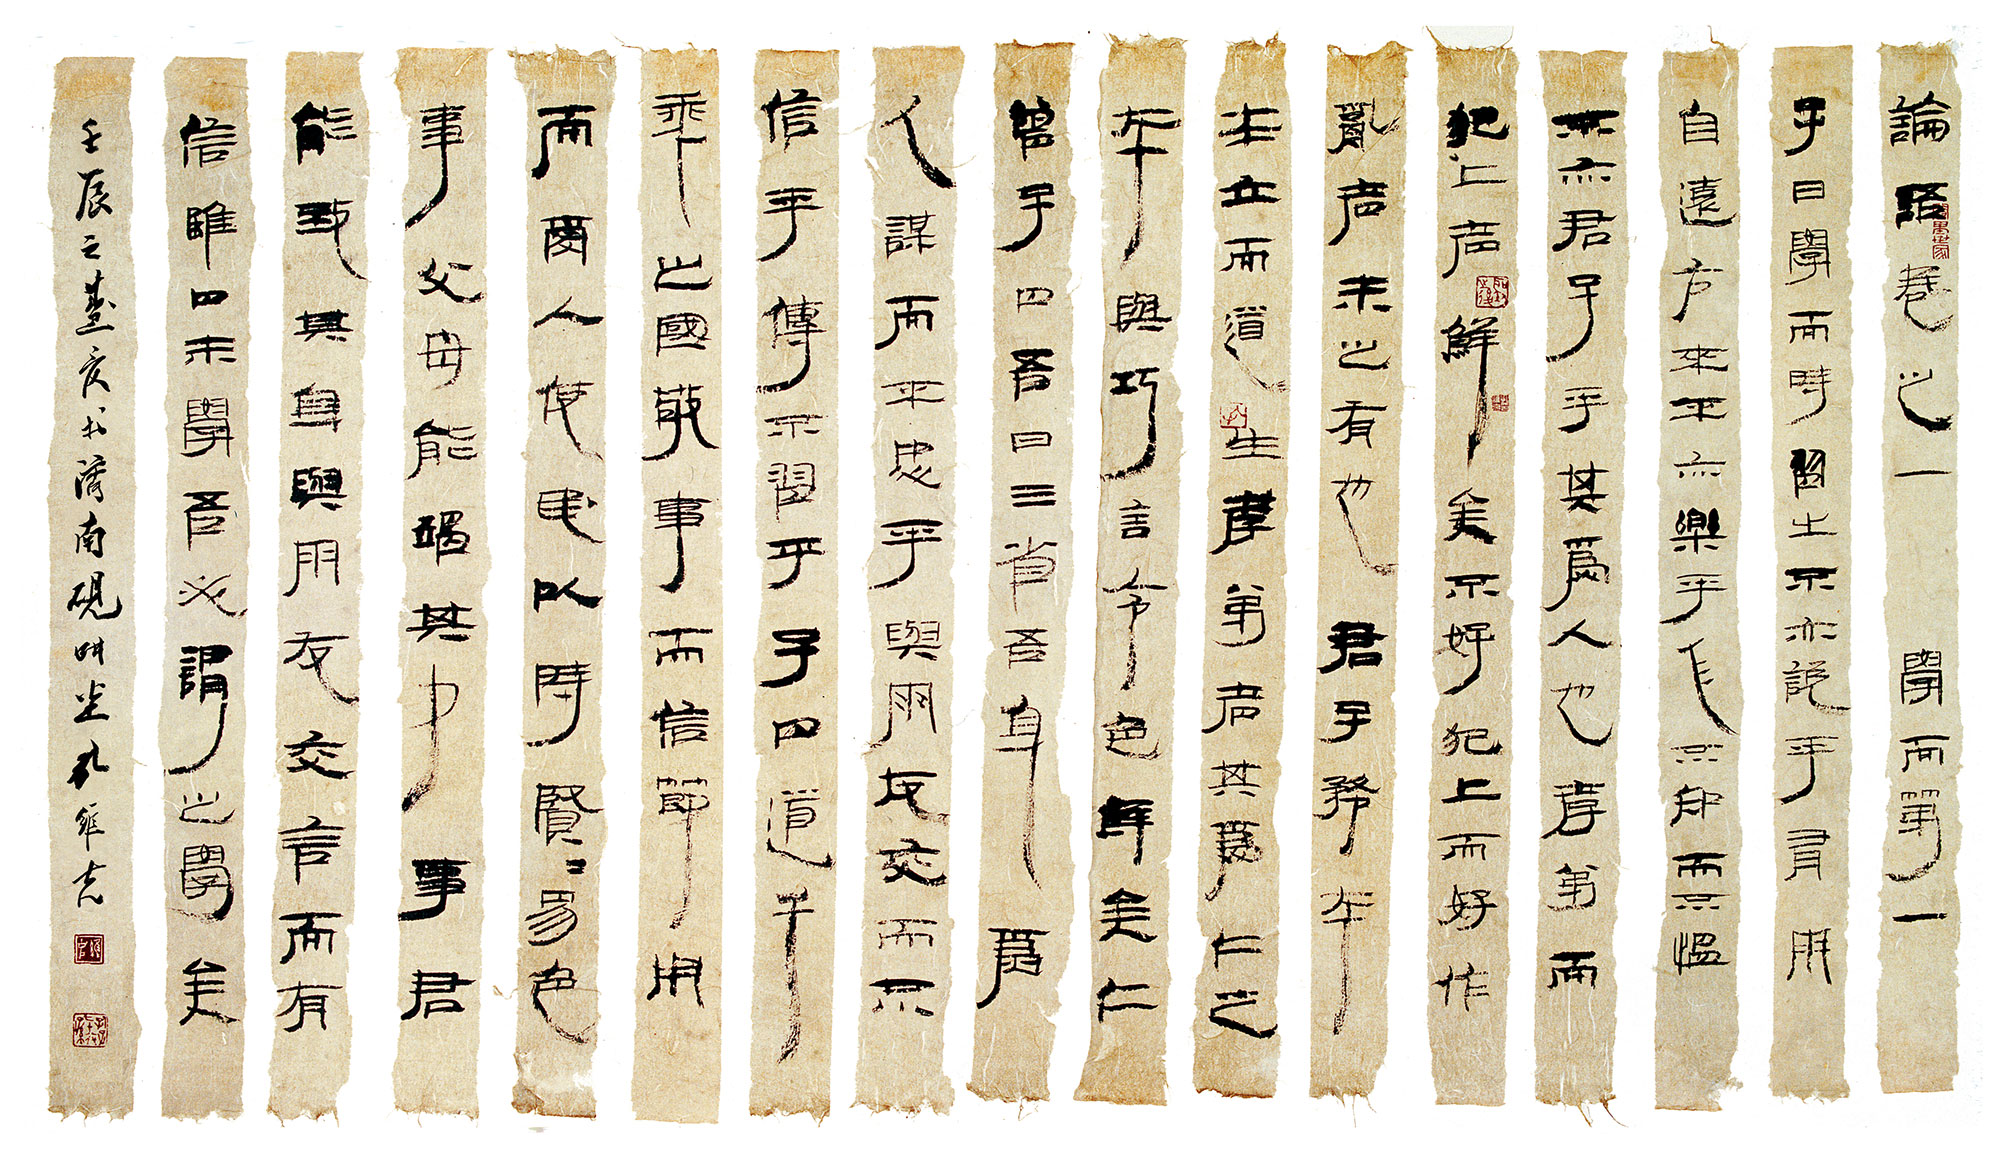 論語卷之一 學而第一
子曰學而時習之不亦說乎有朋
自遠方來不亦樂乎人不知而不慍
不亦君子乎其爲人也孝弟而
犯上者鮮矣不好犯上而好作
亂者未之有也君子務本
本立而道生孝弟者其爲仁之
本與巧言令色鮮矣仁
曾子曰吾日三省吾身爲
人謀而不忠乎與朋友交而不
信乎傳不習乎子曰道千
乘之國敬事而信節用
而愛人使民以時賢〻易色
事父母能竭其力事君
能致其身與朋友交言而有
信雖曰未學吾必謂之學矣
壬辰之夏于濟南硯畊堂孔維克